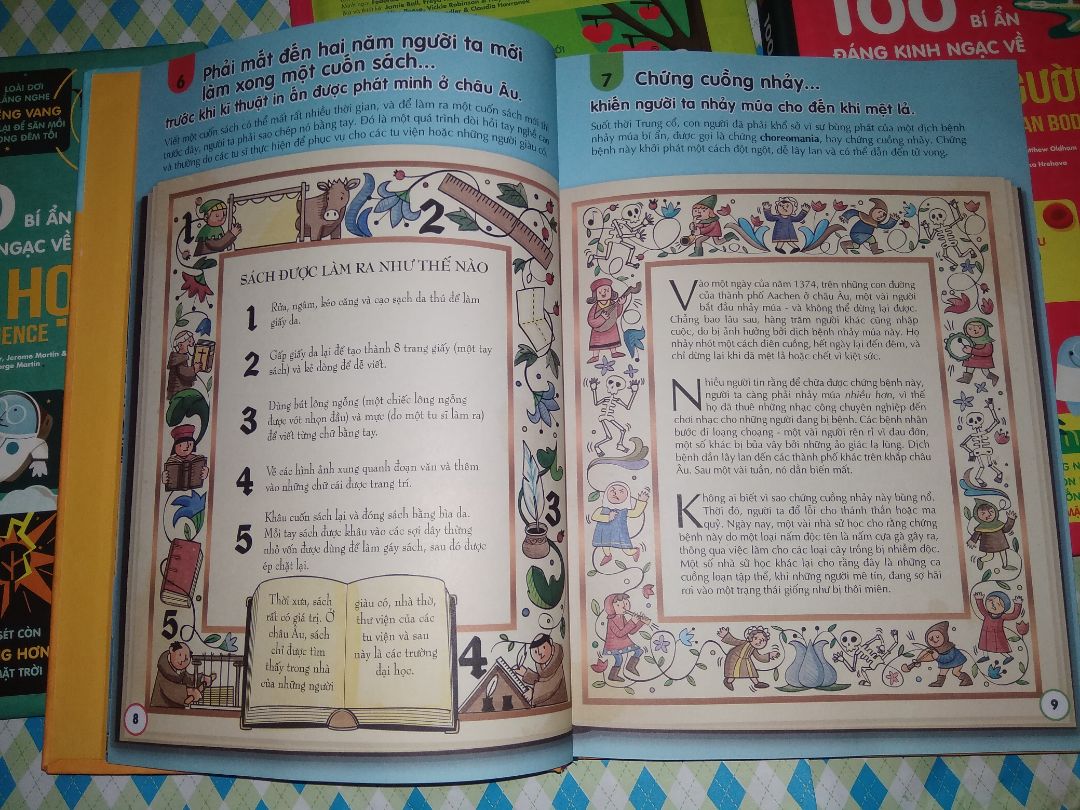 6
Phải mất đến hai năm người ta mới
làm xong một cuốn sách...
trước khi kĩ thuật in ấn được phát minh ở châu Âu.
Viết một cuốn sách có thể mất rất nhiều thời gian, và để làm ra một cuốn sách mới thì
trước đây, người ta phải sao chép nó bằng tay. Đó là một quá trình đòi hỏi tay nghề cao
và thường do các tu sĩ thực hiện để phục vụ cho các tu viện hoặc những người giàu có.
1
2
SÁCH ĐƯỢC LÀM RA NHƯ THẾ NÀO
1 Rửa, ngâm, kéo căng và cạo sạch da thú để làm
giấy da.
2 Gấp giấy da lại để tạo thành 8 trang giấy (một tay
sách) và kẻ dòng để dễ viết.
3 Dùng bút lông ngỗng (một chiếc lông ngỗng
được vót nhọn đầu) và mực (do một tu sĩ làm ra)
để viết từng chữ bằng tay.
4 Vẽ các hình ảnh xung quanh đoạn văn và thêm
vào những chữ cái được trang trí.
5 Khâu cuốn sách lại và đóng sách bằng bìa da.
Mỗi tay sách được khâu vào các sợi dây thừng
nhỏ vốn được dùng để làm gáy sách, sau đó được
ép chặt lại.
3
5
4
Thời xưa, sách
rất có giá trị. Ở
châu Âu, sách
chỉ được tìm
thấy trong nhà
của những người
giàu có, nhà thờ,
thư viện của các
tu viện và sau
này là các trường
đại học.
8
7
Chứng cuồng nhảy...
khiến người ta nhảy múa cho đến khi mệt lả.
Suốt thời Trung cổ, con người đã phải khổ sở vì sự bùng phát của một dịch bệnh
nhảy múa bí ẩn, được gọi là chứng choreomania, hay chứng cuồng nhảy. Chứng
bệnh này khởi phát một cách đột ngột, dễ lây lan và có thể dẫn đến tử vong.
Vào một ngày của năm 1374, trên những con đường
của thành phố Aachen ở châu Âu, một vài người
bắt đầu nhảy múa - và không thể dừng lại được.
Chẳng bao lâu sau, hàng trăm người khác cũng nhập
cuộc, do bị ảnh hưởng bởi dịch bệnh nhảy múa này. Họ
nhảy nhót một cách điên cuồng, hết ngày lại đến đêm, và
chỉ dừng lại khi đã mệt lả hoặc chết vì kiệt sức.
Nhiều người tin rằng để chữa được chứng bệnh này,
người ta càng phải nhảy múa nhiều hơn, vì thế
họ đã thuê những nhạc công chuyên nghiệp đến
chơi nhạc cho những người đang bị bệnh. Các bệnh nhân
bước đi loạng choạng - một vài người rên rỉ vì đau đớn,
một số khác bị bủa vây bởi những ảo giác lạ lùng. Dịch
bệnh dần lây lan đến các thành phố khác trên khắp châu
Âu. Sau một vài tuần, nó dần biến mất.
Không ai biết vì sao chứng cuồng nhảy này bùng nổ.
Thời đó, người ta đổ lỗi cho thánh thần hoặc ma
quỷ. Ngày nay, một vài nhà sử học cho rằng chứng
bệnh này do một loại nấm độc tên là nấm cựa gà gây ra,
thông qua việc làm cho các loại cây trồng bị nhiễm độc.
Một số nhà sử học khác lại cho rằng đây là những ca
cuồng loạn tập thể, khi những người mê tín, đang sợ hãi
rơi vào một trạng thái giống như bị thôi miên.
9
LOÀI DƠI
LẮNG NGHE
TIẾNG VANG
LẠI ĐỂ SĂN MỒI
TRONG ĐÊM TỐI
BÍ ẨN
NGẠC VỀ
Jerome Martin &
Martin
SÉT CÒN
HƠN
MẶT TRỜI
100 BÍ ẨN
ĐÁNG KINH NGẠC VỀ
Matthew Oldham
Hrehova